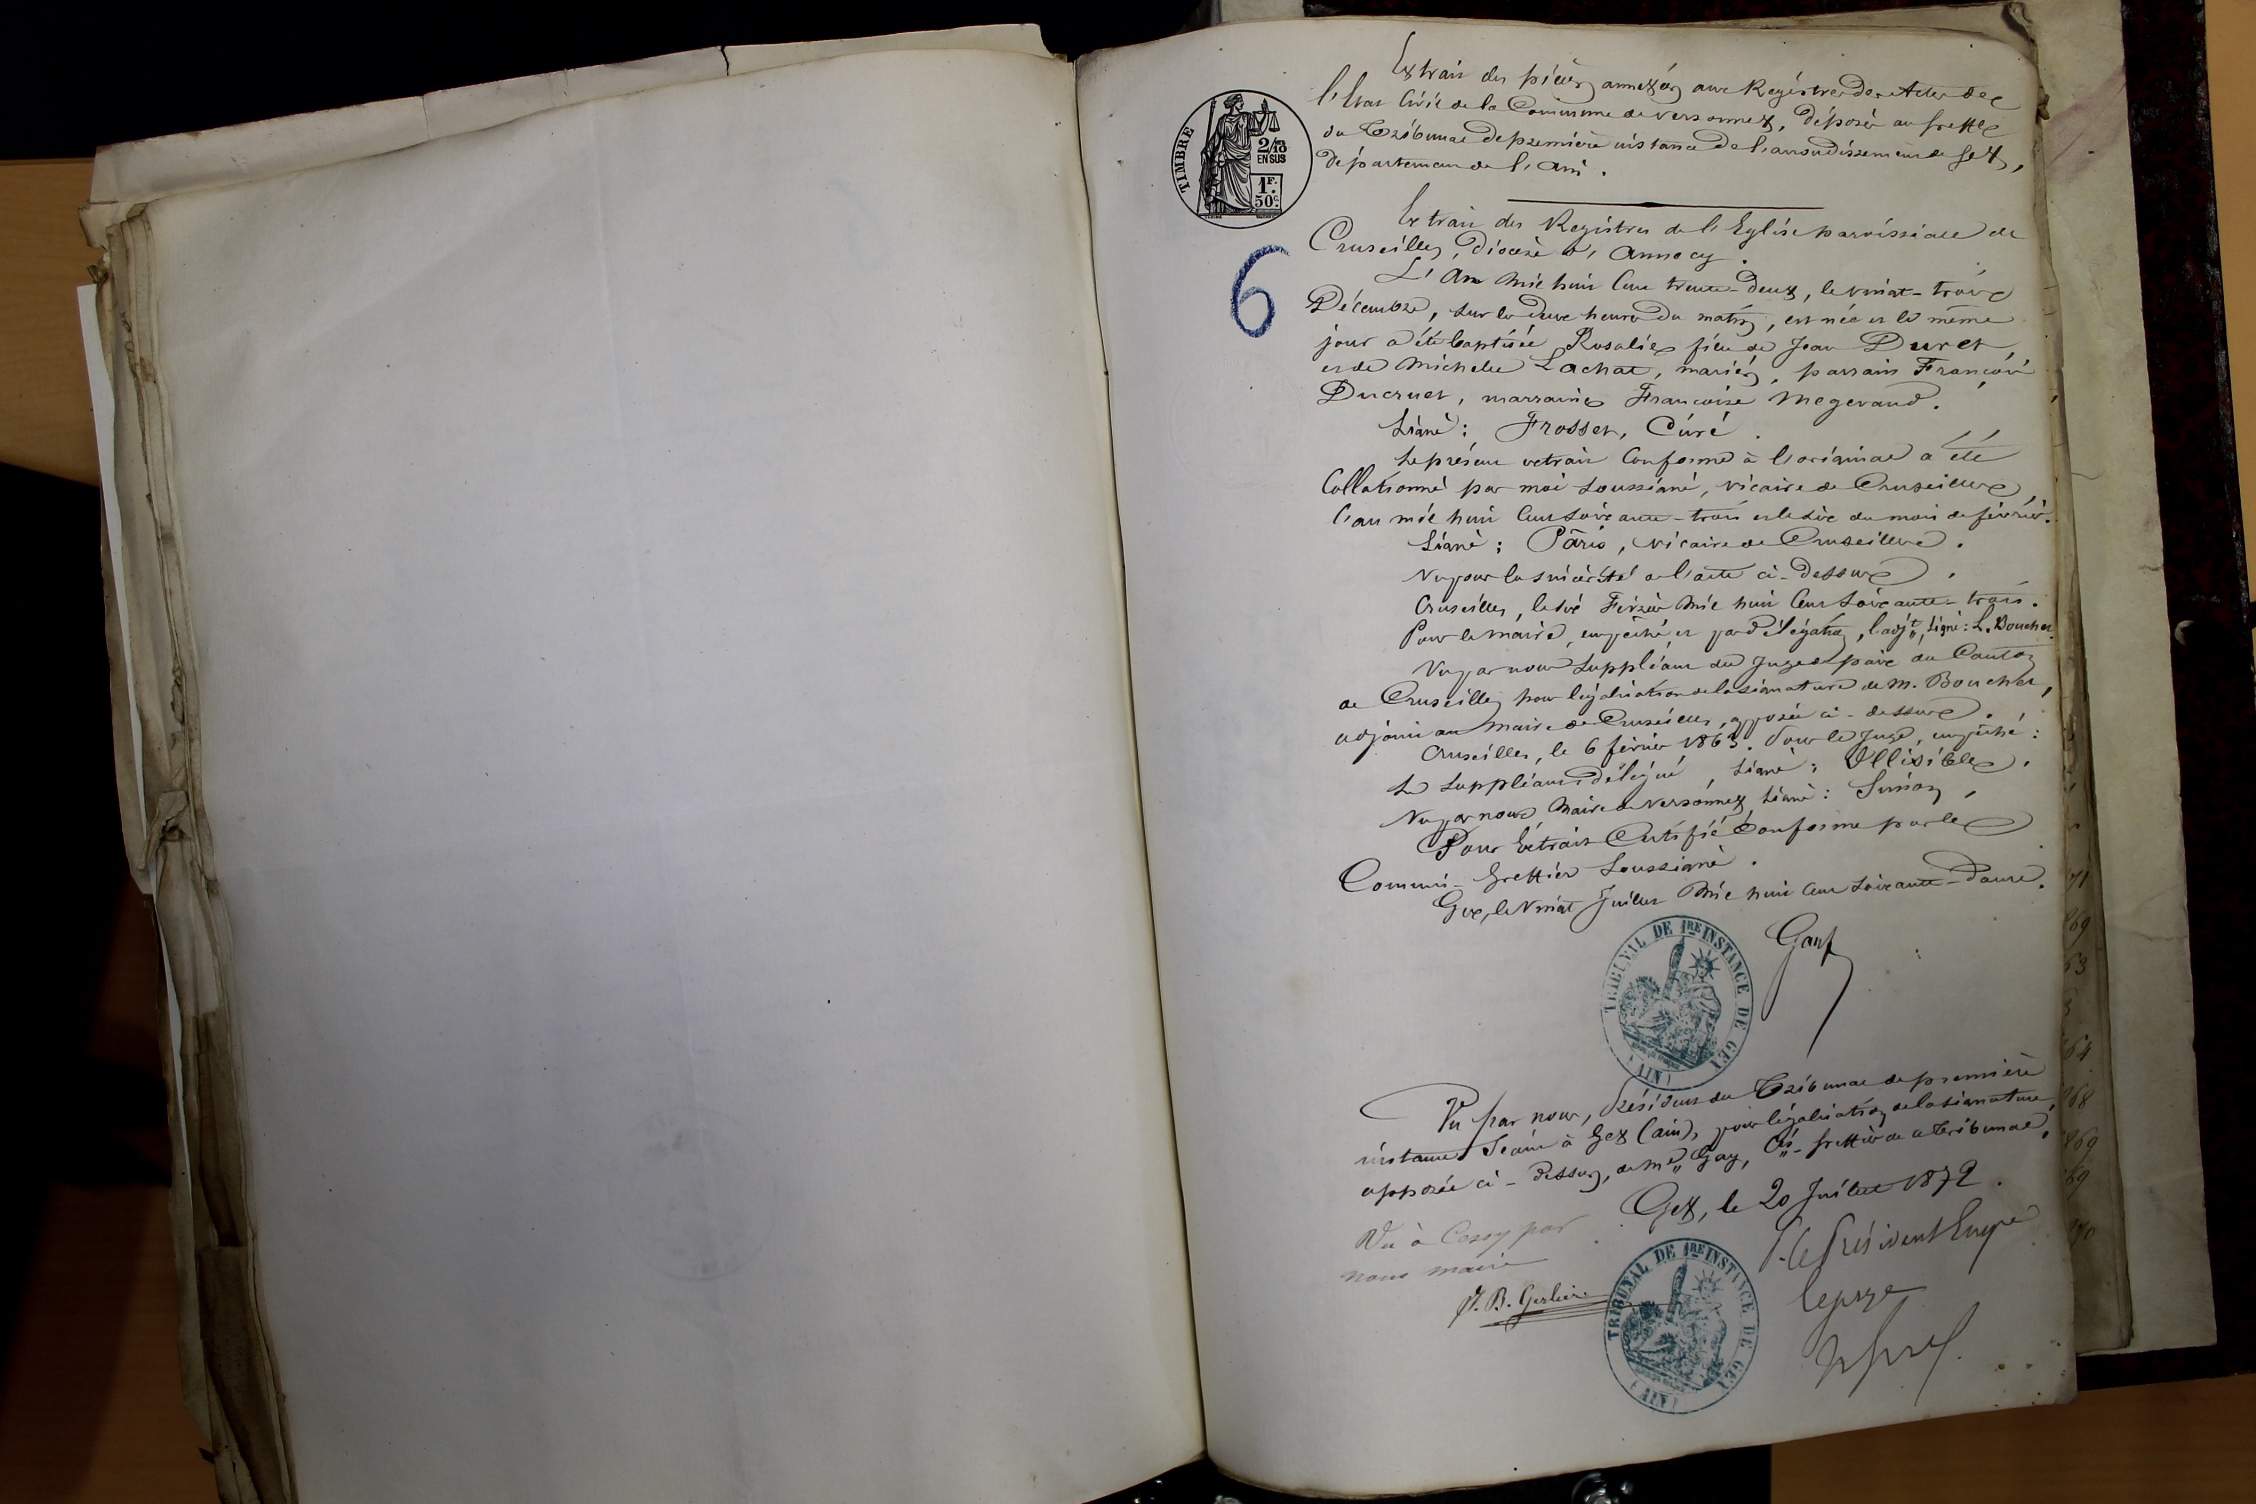 Extrait des pièces annexées aux Registres des Actes de
l'Etat Civil de la Commune de Versonnex, déposés au Greffe
du Tribunal de première instance de l'arrondissement de Gex,
département de l'Ain.
TIMBRE
2/10 EN SUS
1F. 50c.
Extrait des Registres de l'Eglise paroissiale de
Cruseilles, diocèse d'Annecy.
6
L'An mil huit cent trente-deux, le vingt-trois
Décembre, sur les deux heures du matin, est née et le même
jour a été baptisée Rosalie fille de Jean Duret
et de Michelle Lachat, mariés, parrain François
Ducruet, marraine Françoise Megevand.
Signé : Frosset, Curé.
Le présent extrait conforme à l'original a été
Collationné par moi soussigné, vicaire de Cruseilles,
l'an mil huit cent soixante-trois et le six du mois de février.
Signé : Pâris, vicaire de Cruseilles.
Vu pour la sincérité de l'acte ci-dessus.
Cruseilles, le six Février mil huit cent soixante-trois.
Pour le maire, empêché et par délégation, l'adjt, signé : L. Bouchet.
Vu par nous Suppléant du Juge de paix du Canton
de Cruseilles pour légalisation de la signature de M. Bouchet,
adjoint au maire de Cruseilles, apposée ci-dessus.
Cruseilles, le 6 février 1863. Pour le Juge, empêché :
Le Suppléant délégué, signé : Illisible.
Vu par nous Maire de Versonnex signé :
Pour Extrait Certifié Conforme par le
Commis-Greffier soussigné.
Gex, le vingt Juillet mil huit cent soixante-douze.
TRIBUNAL DE 1RE INSTANCE DE GEX
(AIN)
Vu par nous, Président du Tribunal de première
instance séant à Gex (Ain), pour légalisation de la signature,
apposée ci-dessus, de Me Gay, Cis-Greffier de ce Tribunal.
Gex, le 20 Juillet 1872.
Vu à Cessy par
nous maire
P. le Président Empé
le juge
TRIBUNAL DE 1RE INSTANCE DE GEX
(AIN)